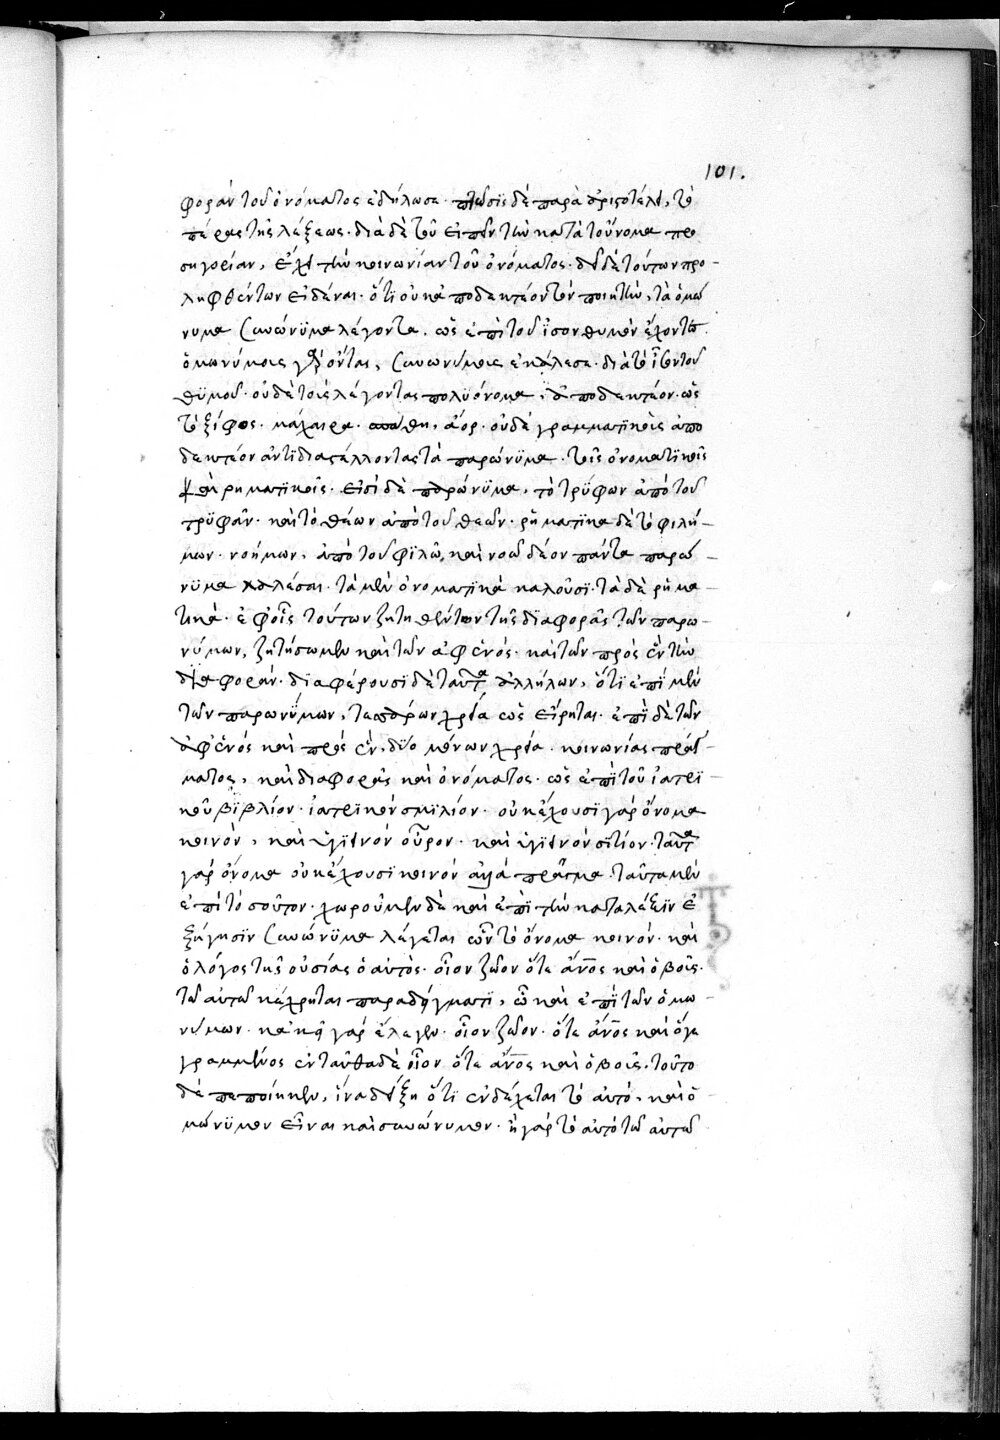 101.
φορὰν τοῦ ὀνόματος ἐδήλωσε· πτῶσϊς δὲ παρὰ ἀριστότέλει, τὸ
πέρας τῆς λέξεως· διὰ δὲ τοῦ εἰπεῖν τὴν κατὰ τοὔνομα προ
σηγορίαν, ἔχει τὴν κοινωνίαν τοῦ ὀνόματος· δεῖ δὲ τούτων προ-
ληφθέντων εἰδέναι· ὅτϊ οὐκ ἀποδεκτέον τὸν ποιητὴν, τὰ ὁμώ
νυμα συνώνϋμα λέγοντα· ὡς ἐπὶ τοῦ ἶσον θυμὸν ἔχοντες
ὁμωνύμοις γὰρ οὖσι, συνωνύμοις ἐκάλεσε· διὰ τὸ ἶσον τοῦ
θϋμοῦ· οὐδὲ τοὺς λέγοντας πολϋόνομα, ἀποδεκτέον· ὡς
τὸ ξίφος· μάχαιρα· σπάθη, ἄορ· οὐδὲ γραμματϊκοῖς ἀπο
δεκτέον ἀντϊδιαστέλλοντας τὰ παρώνϋμα· τοῖς ὀνοματϊκοῖς
καὶ ρηματϊκοῖς· εἰσὶ δὲ παρώνϋμα, τὸ τρΰφων ἀπὸ τοῦ
τρϋφᾶν· καὶ τὸ θέων ἀπὸ τοῦ θεῶν· ρηματϊκα δὲ τὸ φιλή-
μων· νοήμων, ἀπὸ τοῦ φϊλῶ, καὶ νοῶ δέον πάντα παρώ-
νϋμα καλέσαι· τὰ μὲν ὀνοματϊκὰ καλοῦσϊ· τὰ δὲ ρημα-
τικὰ· ἐφ' οἷς τούτων ζητηθέντων τῆς δϊαφορᾶς τῶν παρω-
νύμων, ζητήσωμεν καὶ τῶν ἀφ' ἑνὸς· καὶ τῶν πρὸς ἓν τὴν
διαφοράν· διαφέρουσϊ δὲ ταῦτα ἀλλήλων, ὅτϊ ἐπὶ μὲν
τῶν παρωνΰμων, τεσσάρων χρεία ὡς εἴρηται· ἐπὶ δὲ τῶν
ἀφ' ἑνὸς καὶ πρὸς ἓν, δΰο μόνων χρεία· κοινωνίας πράγ-
ματος, καὶ διαφορᾶς καὶ ὀνόματος· ὡς ἐπὶ τοῦ ἰατρϊ-
κοῦ βϊβλίον· ἰατρϊκὸν σμϊλίον· οὐκ ἔχουσϊ γὰρ ὄνομα
κοινὸν, καὶ ὑγϊεινὸν οὖρον· καὶ ὑγϊεινὸν σϊτίον· ταῦτα
γὰρ ὄνομα οὐκ ἔχουσϊ κοινὸν ἀλλὰ πρᾶγμα· ταῦτα μὲν
ἐπὶ τὸ σοῦτον· χωροῦμεν δὲ καὶ ἐπὶ τὴν κατὰ λέξϊν ἐ
ξήγησϊν συνώνϋμα λέγεται ὧν τὸ ὄνομα κοινὸν· καὶ
ὁ λόγος τῆς οὐσίας ὁ αὐτὸς· οἷον ζῶον ὅτε ἄνος καὶ ὁ βοῦς·
τῶ αὐτῶ κέχρηται παραδείγματϊ, ὧ καὶ ἐπὶ τῶν ὁμω-
νύμων· κἀκεῖ γὰρ ἔλεγεν· οἷον ζῶον· ὅτε ἄνος καὶ ὁ γε
γραμμένος ἐνταῦθα δὲ οἷον ὅτε ἄνος καὶ ὁ βοῦς· τοῦτο
δὲ πεποίηκεν, ἵνα δείξη ὅτϊ ἐνδέχεται τὸ αὐτὸ, καὶ ὁ
μώνϋμον εἶναι καὶ συνώνυμον· ἢ γὰρ τὸ αὐτὸ τῶ αὐτῶ